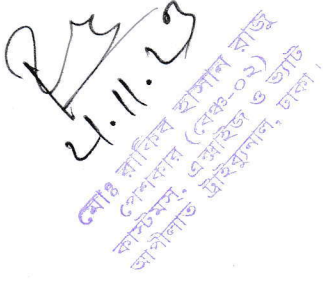 ২১.১১.২৩
মোঃ রাকিব হাসান রাজু
পেশকার (বেঞ্চ-০২)
কাস্টমস, এক্সাইজ ও ভ্যাট
আপীলাত ট্রাইব্যুনাল, ঢাকা।